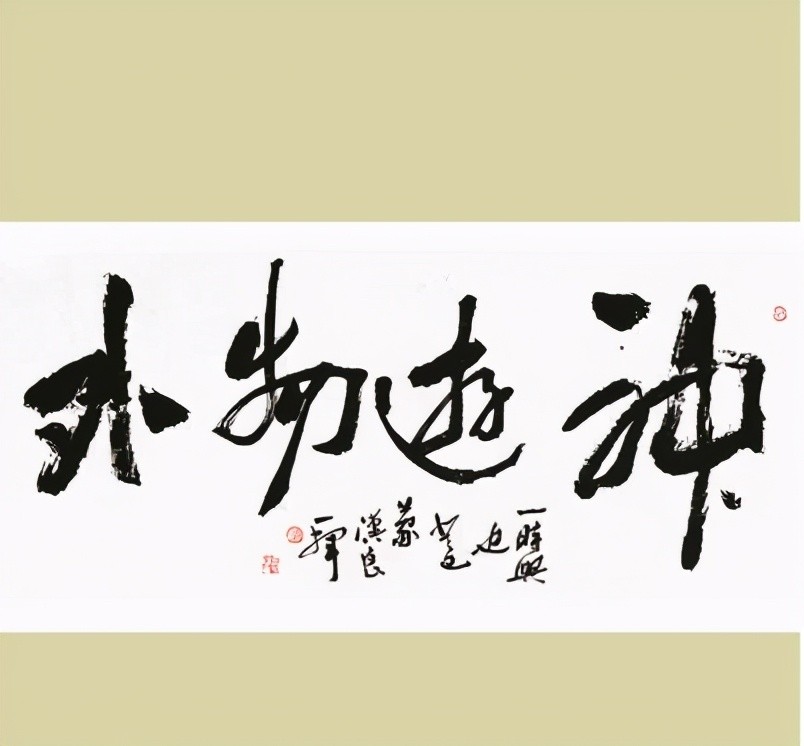 神遊物外
一時興
也
漢良
一揮